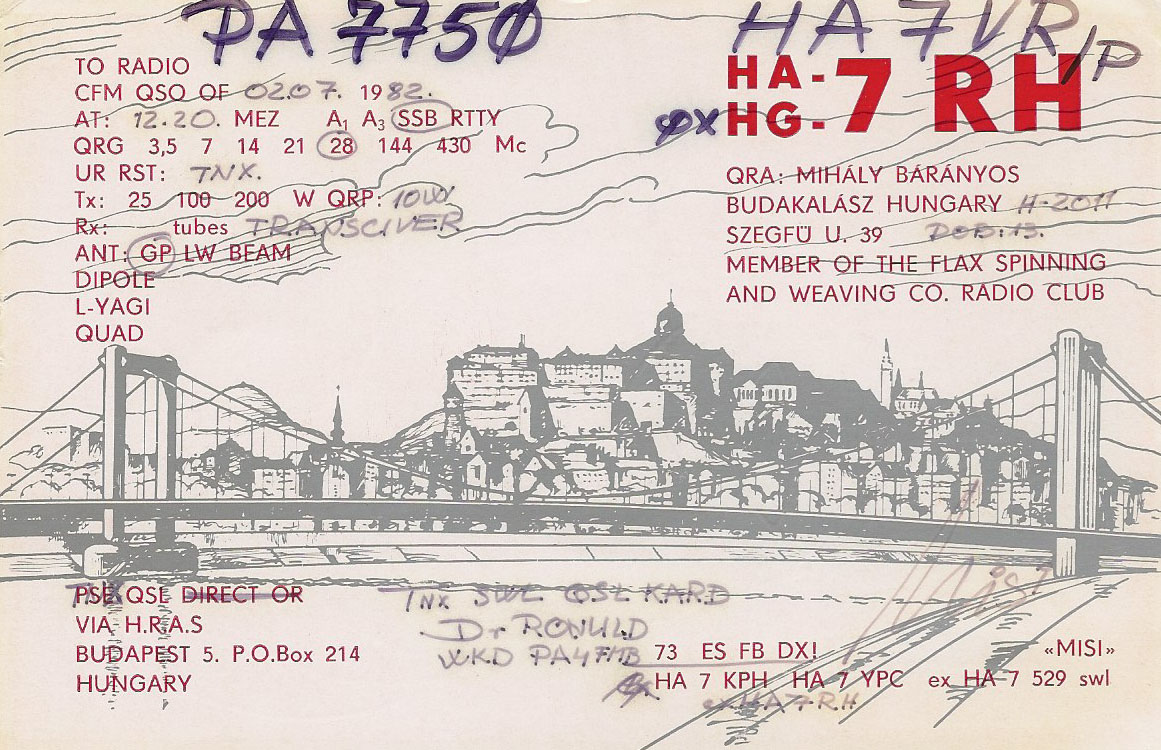 PA 7750
HA 7VR/P
TO RADIO
CFM QSO OF 02.07. 1982.
AT: 12.20. MEZ A1 A3 SSB RTTY
QRG 3,5 7 14 21 28 144 430 Mc
UR RST: TNX.
Tx: 25 100 200 W QRP: 10W
Rx: tubes TRANSCIVER
ANT: GP LW BEAM
DIPOLE
L-YAGI
QUAD
HA-
HG- 7 RH
QRA: MIHÁLY BÁRÁNYOS
BUDAKALÁSZ HUNGARY H-2011
SZEGFÜ U. 39 POB: 13.
MEMBER OF THE FLAX SPINNING
AND WEAVING CO. RADIO CLUB
PSE QSL DIRECT OR
VIA H.R.A.S
BUDAPEST 5. P.O.Box 214
HUNGARY
TNX SWL QSL KARD
Dr RONULD
WKD PA4FMB
Misi
73 ES FB DX! «MISI»
HA 7 KPH HA 7 YPC ex HA 7 529 swl
ex HA7RH